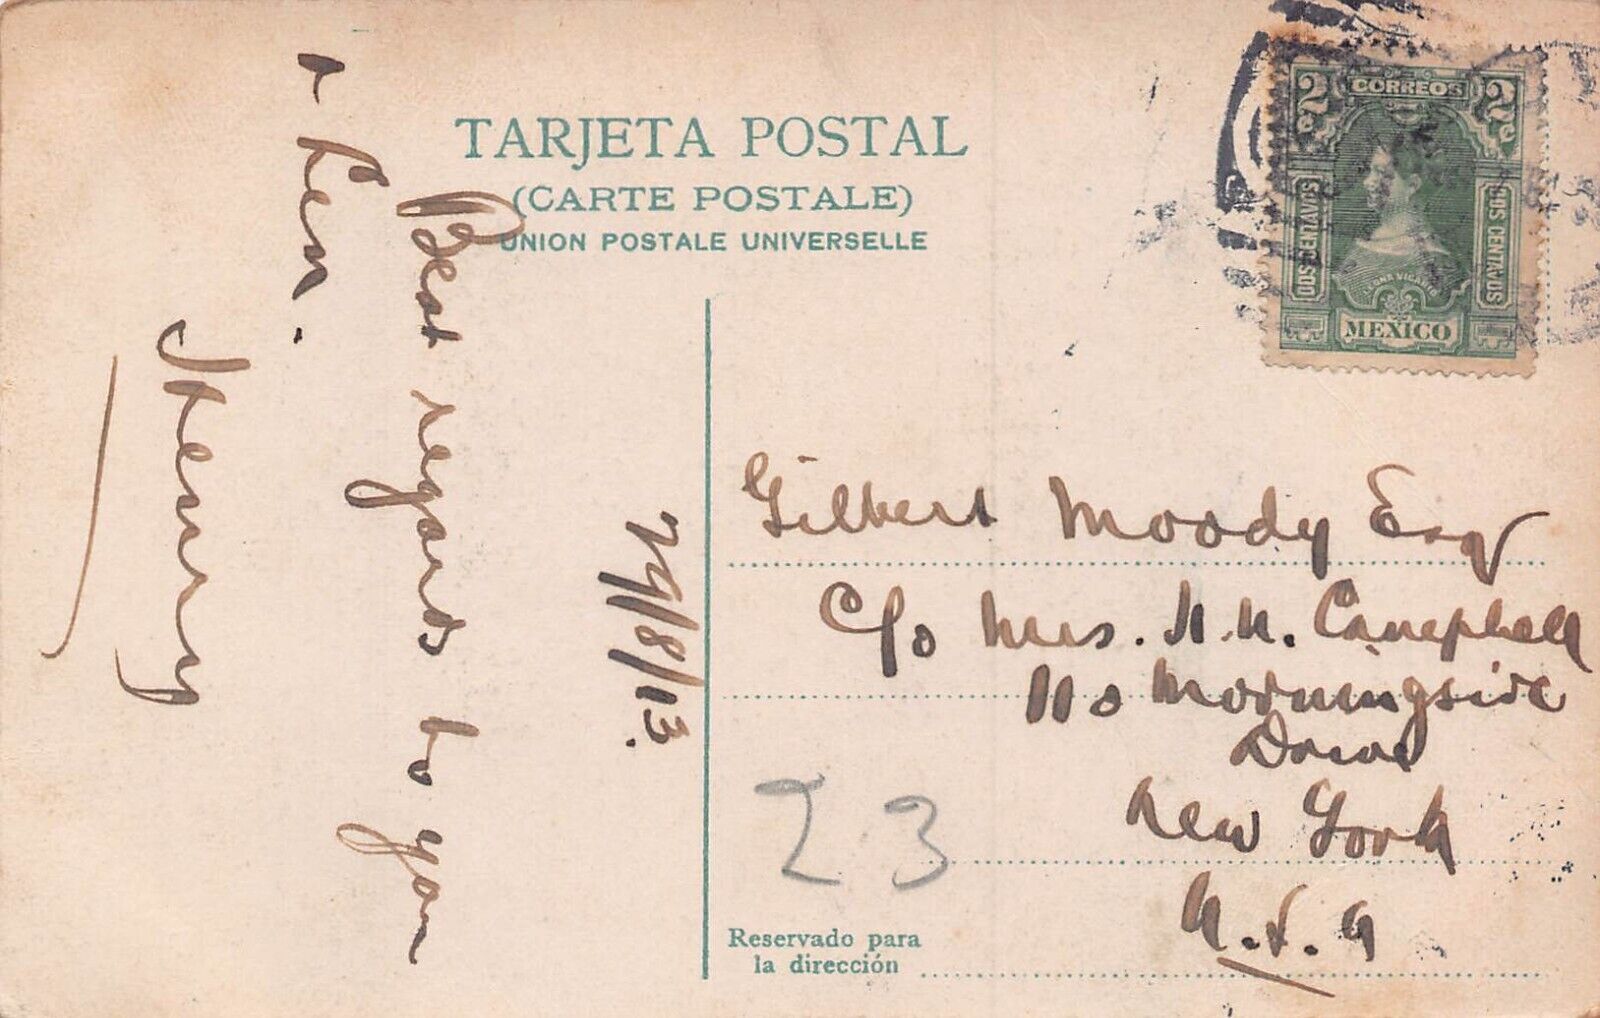 TARJETA POSTAL
(CARTE POSTALE)
UNION POSTALE UNIVERSELLE
2c CORREOS 2c
DOS CENTAVOS
DOS CENTAVOS
LEONA VICARIO
MEXICO
29/8/13.
Best regards to you
Henry
Gilbert Moody Esq
c/o Mrs. H. N. Campbell
110 Morningside
Drive
New York
U.S.A
23
Reservado para
la dirección